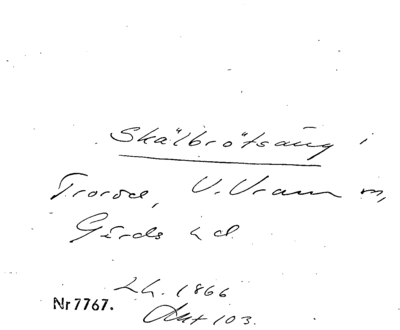 Skälbrötsäng i
Troröd, V. Vram sn,
Gärds hd
Lh. 1866
Akt 103.
Nr 7767.